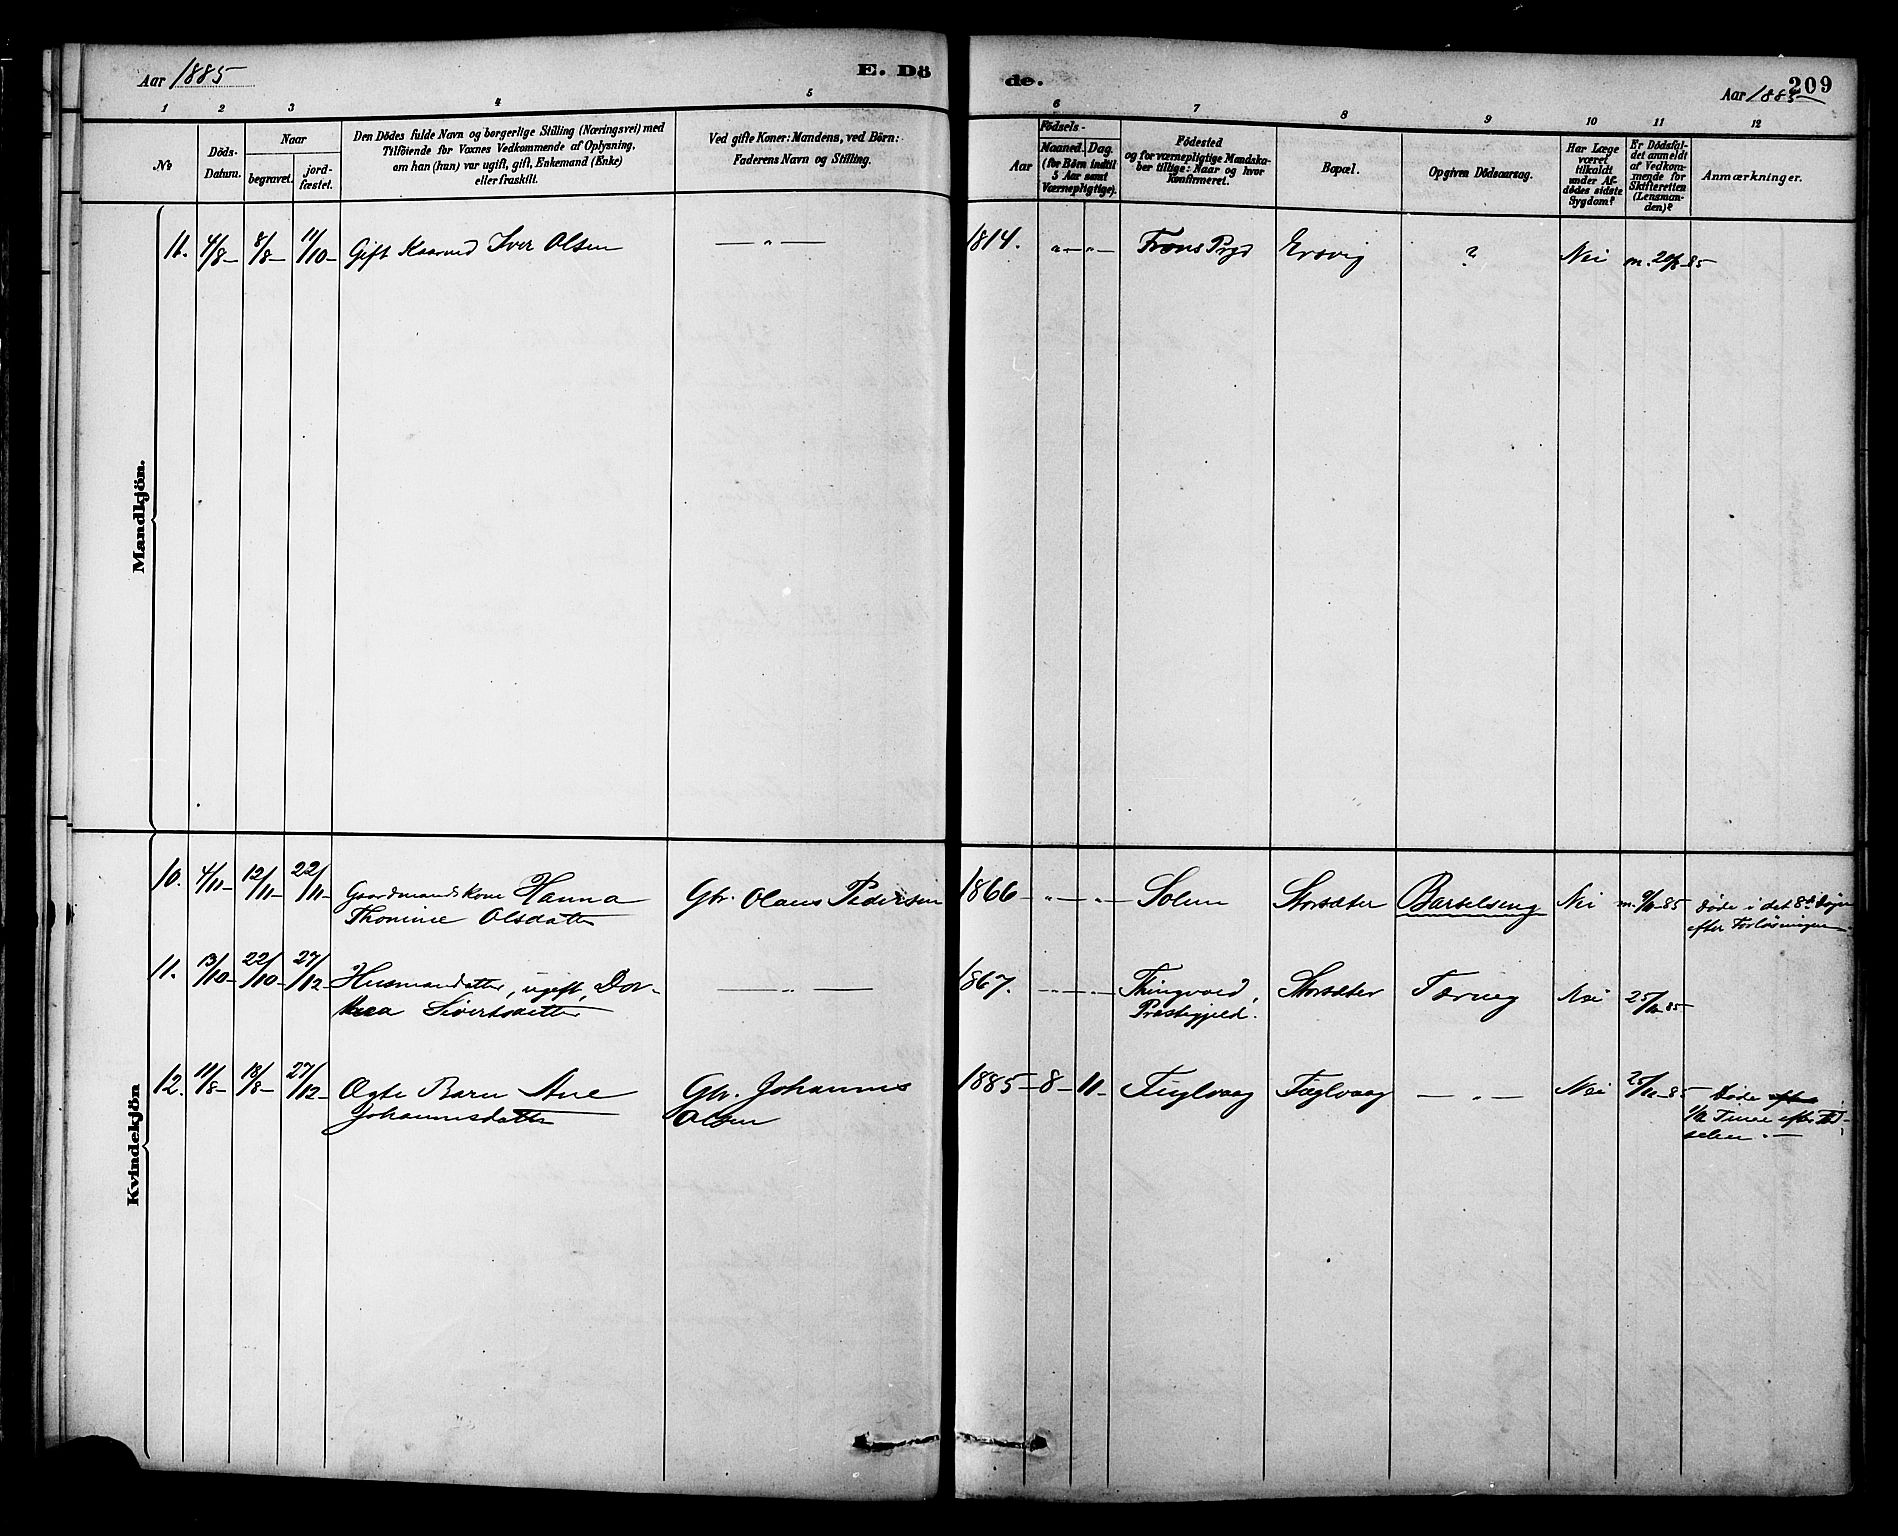 Aar 1885
E. Dö
de.
209
Aar 1885
1 2 3 4 5 6 7 8 9 10 11 12
No
Döds-
Datum.
Naar
begravet.
jord-
fæstet.
Den Dödes fulde Navn og borgerlige Stilling (Næringsvei) med
Tilföiende for Voxnes Vedkommende af Oplysning,
om han (hun) var ugift, gift, Enkemand (Enke)
eller fraskilt.
Ved gifte Koner: Mandens, ved Börn:
Faderens Navn og Stilling.
Födsels-
Aar
Maaned. Dag.
(for Börn indtil
5 Aar samt
Værnepligtige).
Födested
og for værnepligtige Mandska-
ber tillige: Naar og hvor
konfirmeret.
Bopæl.
Opgiven Dödsaarsag.
Har Læge
været
tilkaldt
under Af-
dödes sidste
Sygdom?
Er Dödsfal-
det anmeldt
af Vedkom-
mende for
Skifteretten
(Lensman-
den)?
Anmærkninger.
Mandkjön.
11. 4/8- 8/8- 11/10- Gift Kaarmd Iver Olsen — „ — 1814. „ — „ — Prgd ? Nei
Kvindekjön
10. 4/11- 12/11- 22/11- Gaardmandskone Hanna Gbr. Olaus Pedersen 1866 - „ - „ - Solem Storsæter Barselseng Nei Døde i det 8de Døgn
Thomine Olsdatter efter Forløsningen.
11. 13/10- 22/10- 27/12- Husmandsdatter, ugift, Dor- — „ — 1867. - „ - „ - Thingvold, Storsæter Tæring Nei 25/10-85
thea Sivertsdatter Præstegjeld.
12. 11/8- 18/8- 27/12- Ægte Barn Ane Gbr. Johannes 1885- 8- 11- Fuglvaag Fuglvaag — „ — Nei 25/10-85 Døde efter
Johannesdatter Olsen 1/2 Time efter Fød-
selen. —